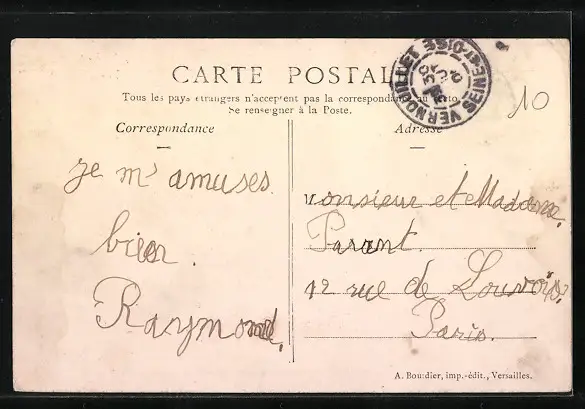 CARTE POSTALE
Tous les pays étrangers n'acceptent pas la correspondance au recto.
Se renseigner à la Poste.
Correspondance
Adresse
VERNOUILLET SEINE-ET-OISE
10
je m's amuses
bien.
Raymond.
Monsieur et Madame,
Parent.
12 rue de Louvois,
Paris.
A. Bourdier, imp.-édit., Versailles.